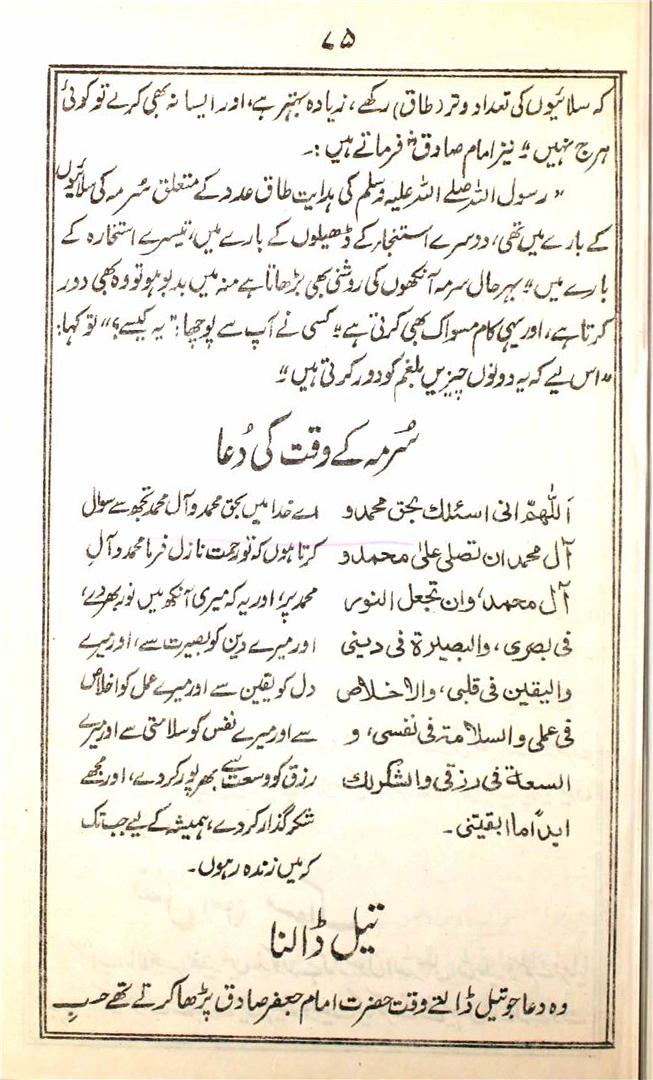 ۷۵
کہ سلائیوں کی تعداد وتر (طاق) رکھے، زیادہ بہتر ہے، اور ایسا نہ بھی کرے تو کوئی
ہرج نہیں‘‘ نیز امام صادقؑ فرماتے ہیں :۔
’’رسول اللہ صلے اللہ علیہ وسلم کی ہدایت طاق عدد کے متعلق سُرمہ کی سلائیوں
کے بارے میں تھی، دوسرے استنجار کے ڈھیلوں کے بارے میں، تیسرے استخارہ کے
بارے میں‘‘ بہرحال سرمہ آنکھوں کی روشنی بھی بڑھاتا ہے منہ میں بدبو ہو تو وہ بھی دور
کرتا ہے، اور یہی کام مسواک بھی کرتی ہے‘‘ کسی نے آپ سے پوچھا: ’’یہ کیسے؟‘‘ تو کہا:
’’اس لیے کہ یہ دونوں چیزیں بلغم کو دور کرتی ہیں‘‘
سُرمہ کے وقت کی دُعا
اَللّٰھُمَّ انی اسئلک بحق محمد و
آل محمد ان تصلی علیٰ محمد و
آل محمد، وان تجعل النور
فی بصری، والبصیرۃ فی دینی
والیقین فی قلبی، والاخلاص
فی عملی والسلامۃ فی نفسی، و
السعۃ فی رزقی والشکر لک
ابداً ما ابقیتنی۔
اے خدا میں بحق محمد و آل محمد تجھ سے سوال
کرتا ہوں کہ تو رحمت نازل فرما محمد و آلِ
محمد پر، اور یہ کہ میری آنکھ میں نور بھر دے،
اور میرے دین کو بصیرت سے، اور میرے
دل کو یقین سے اور میرے عمل کو اخلاص
سے اور میرے نفس کو سلامتی سے اور میرے
رزق کو وسعت سے بھرپور کر دے، اور مجھے
شکر گذار کر دے، ہمیشہ کے لیے جب تک
کہ میں زندہ رہوں۔
تیل ڈالنا
وہ دعا جو تیل ڈالتے وقت حضرت امام جعفر صادق پڑھا کرتے تھے حسبِ